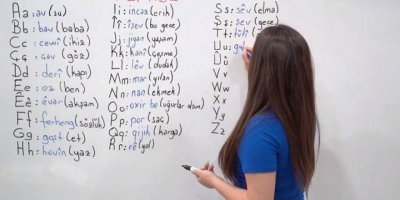 Aa: av (su)
Bb: bav (baba)
Cc: cewî (ikiz)
Çç: çav (göz)
Dd: derî (kapı)
Ee: ev (bu)
Êê: êvar (akşam)
Ff: ferheng (sözlük)
Gg: goşt (et)
Hh: havîn (yaz)
Ii: incaz (erik)
Îî: îşev (bu gece)
Jj: jiyan (yaşam)
Kk: kanî (çeşme)
Ll: lêv (dudak)
Mm: mar (yılan)
Nn: nan (ekmek)
Oo: oxir be (uğurlar olsun)
Pp: por (saç)
Qq: qijik (karga)
Rr: rê (yol)
Ss: sêv (elma)
Şş: şev (gece)
Tt:
Uu:
Ûû
Vv
Ww
Xx
Yy
Zz